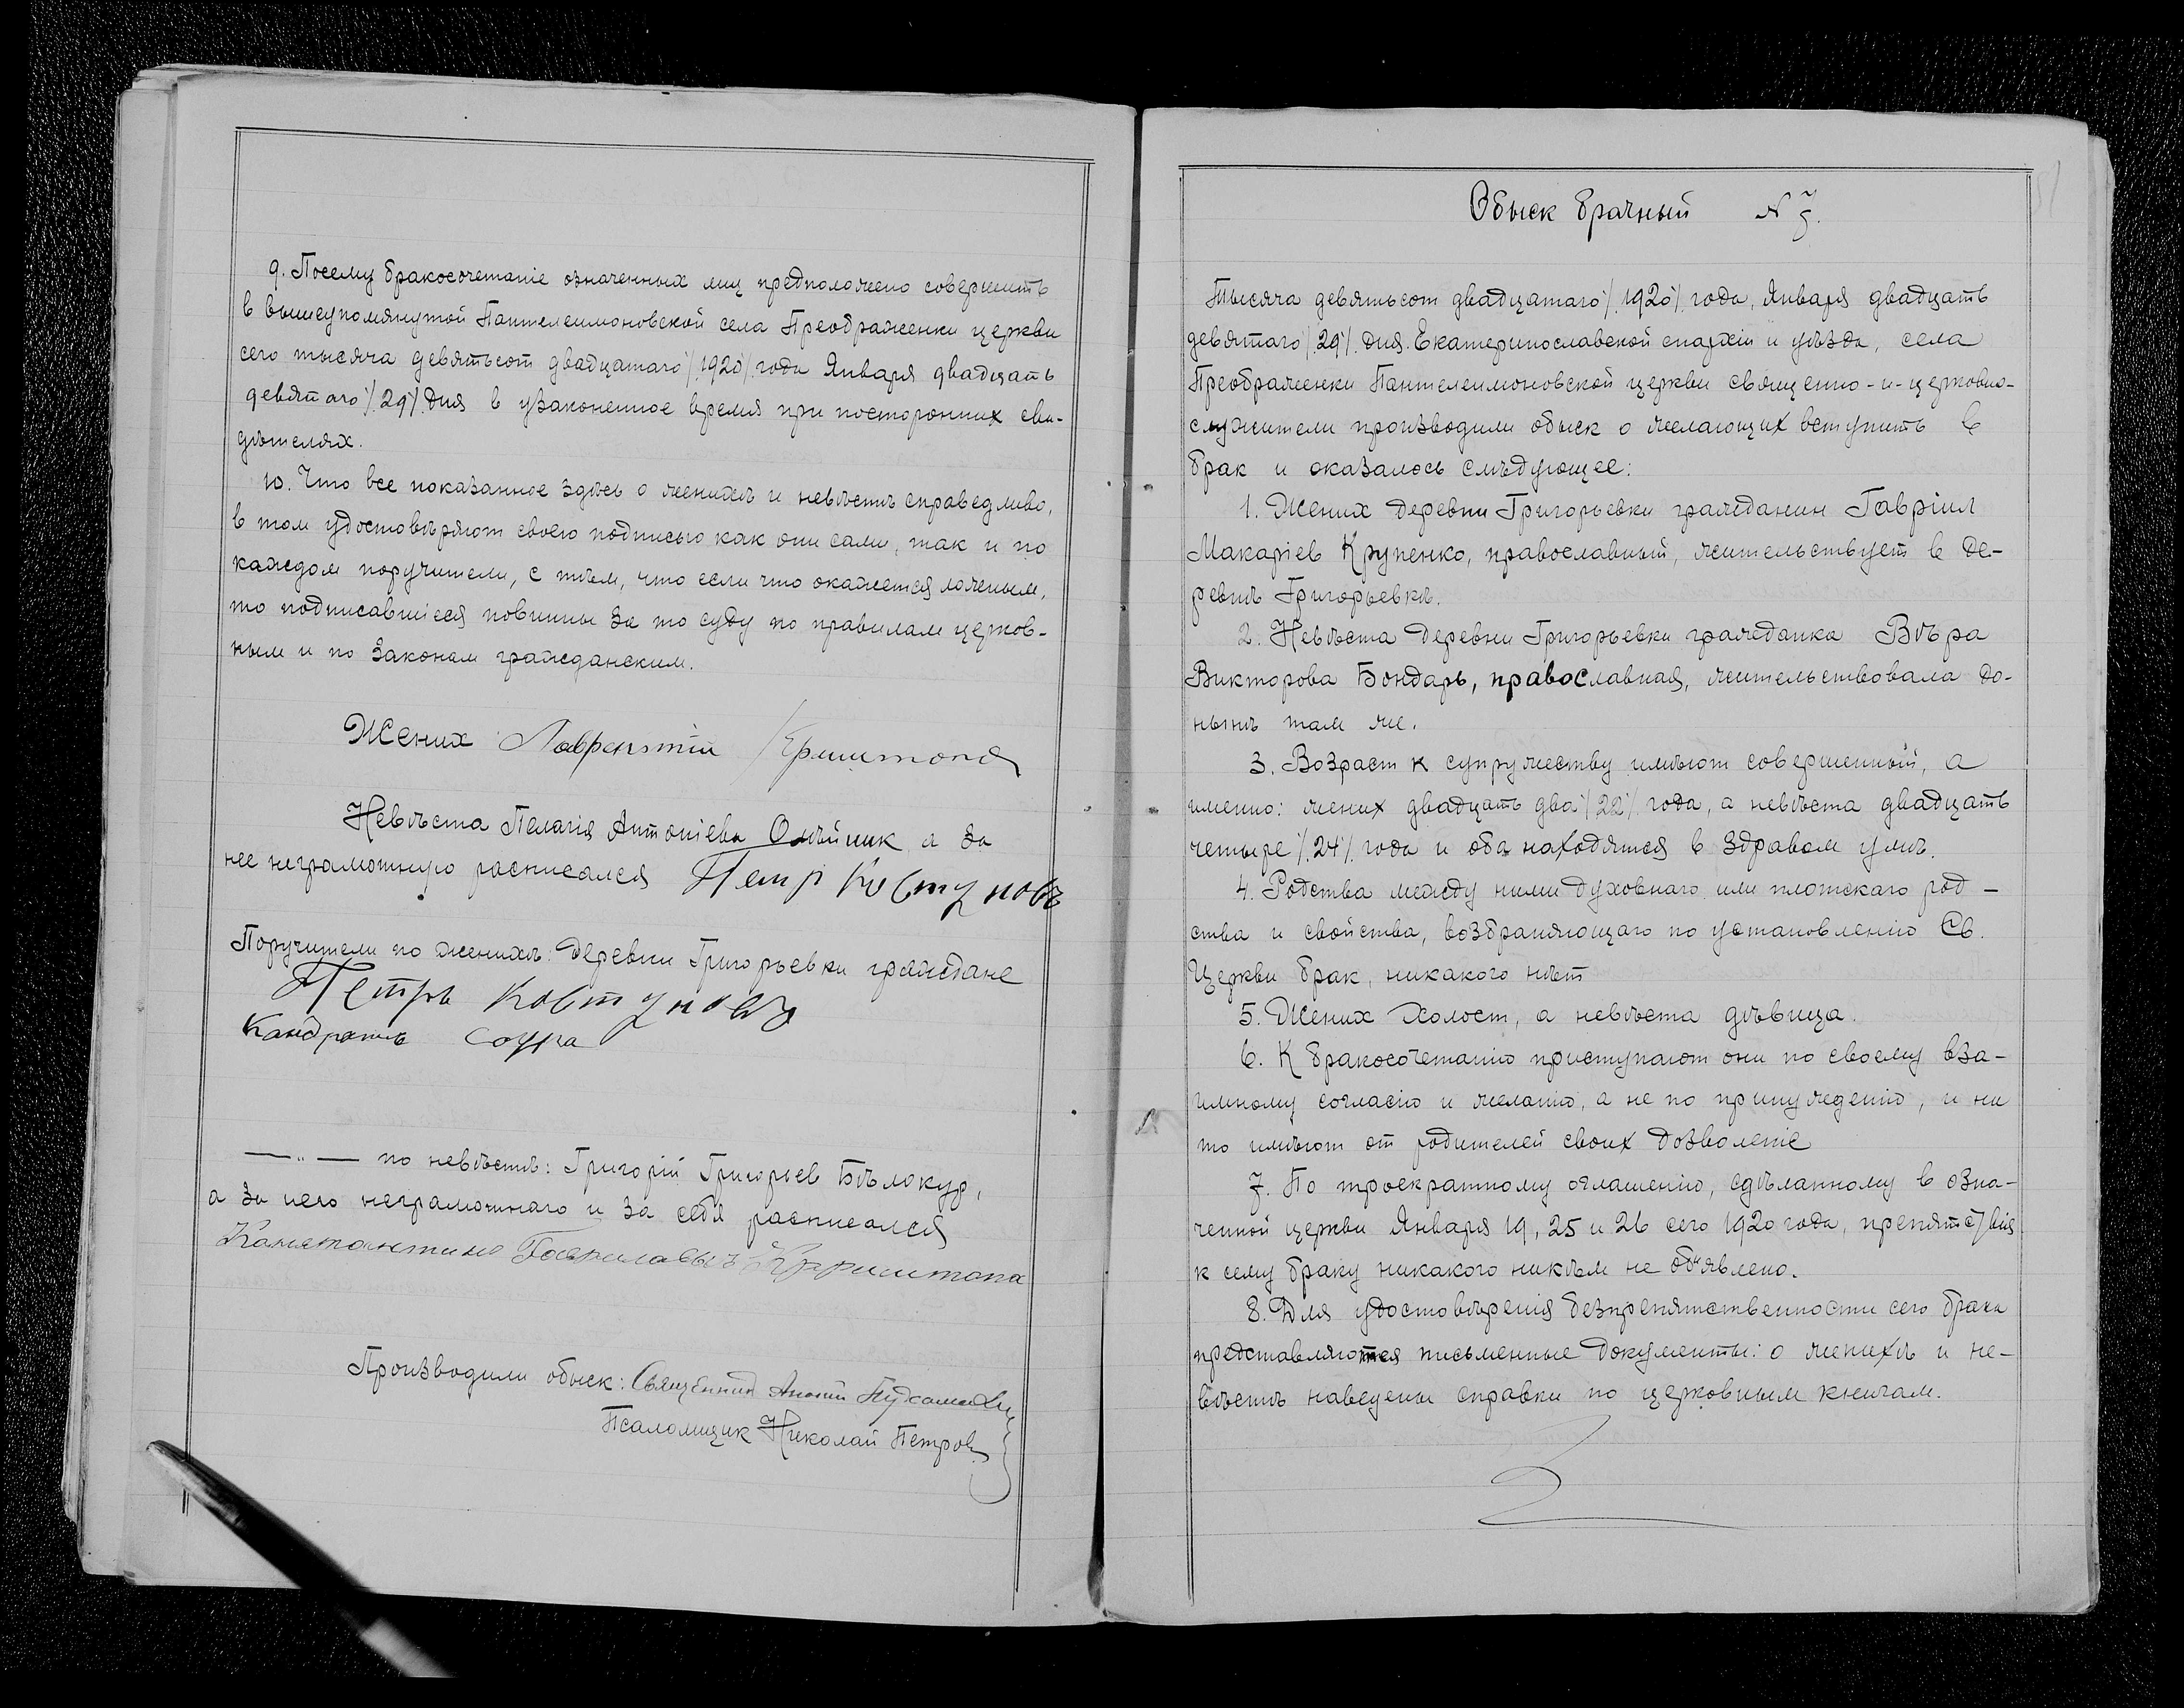 9. Посему бракосочетаніе означенных лиц предположено совершить
в вышеупомянутой Пантелеимоновской села Преображенки церкви
сего тысяча девятьсот двадцатаго /.1920/. года Января двадцать
девятаго /.29/. дня в узаконенное время при посторонних сви-
дѣтелях.
10. Что все показанное здѣсь о женихѣ и невѣстѣ справедливо,
в том удостовѣряют своею подписью как они сами, так и по
каждом поручители, с тѣм, что если что окажется ложным,
то подписавшіеся повинны за то суду по правилам церков-
ным и по законам гражданским.
Жених Лаврентій Криштопа
Невѣста Пелагія Антоніева Олѣйник а за
нее неграмотную расписался Петр Ковтуновъ
Поручители по женихѣ: деревни Григорьевки граждане
Петръ Ковтуновъ
Кандратъ
—„— по невѣстѣ: Григорій Григорьев Бѣлокур,
а за него неграмотнаго и за себя расписался
Канстантинъ Криштопа
Производили обыск: Священник
Псаломщик Николай Петров
Обыск брачный N 7.
Тысяча девятьсот двадцатаго /.1920/. года, Января двадцать
девятаго /.29/. дня. Екатеринославской епархіи и уѣзда, села
Преображенки Пантелеимоновской церкви священно-и-церковно-
служители производили обыск о желающих вступить в
брак и оказалось слѣдующее:
1. Жених деревни Григорьевки гражданин Гавріил
Макаріев Крупенко, православный, жительствует в де-
ревнѣ Григорьевкѣ.
2. Невѣста деревни Григорьевки гражданка Вѣра
Викторова Бондарь, православная, жительствовала до-
нынѣ там же.
3. Возраст к супружеству имѣют совершенный, а
именно: жених двадцать два /.22/. года, а невѣста двадцать
четыре /.24/. года и оба находятся в здравом умѣ.
4. Родства между ними духовнаго или плотскаго род-
ства и свойства, возбраняющаго по установленію Св.
Церкви брак, никакого нѣт
5. Жених холост, а невѣста дѣвица.
6. К бракосочетанію приступают они по своему вза-
имному согласію и желанію, а не по принужденію, и на
то имѣют от родителей своих дозволеніе
7. По троекратному оглашенію, сдѣланному в озна-
ченной церкви Января 19, 25 и 26 сего 1920 года, препятствія
к сему браку никакого никѣм не объявлено.
8. Для удостовѣренія безпрепятственности сего брака
представляются письменные документы: о женихѣ и не-
вѣстѣ наведены справки по церковным книгам.